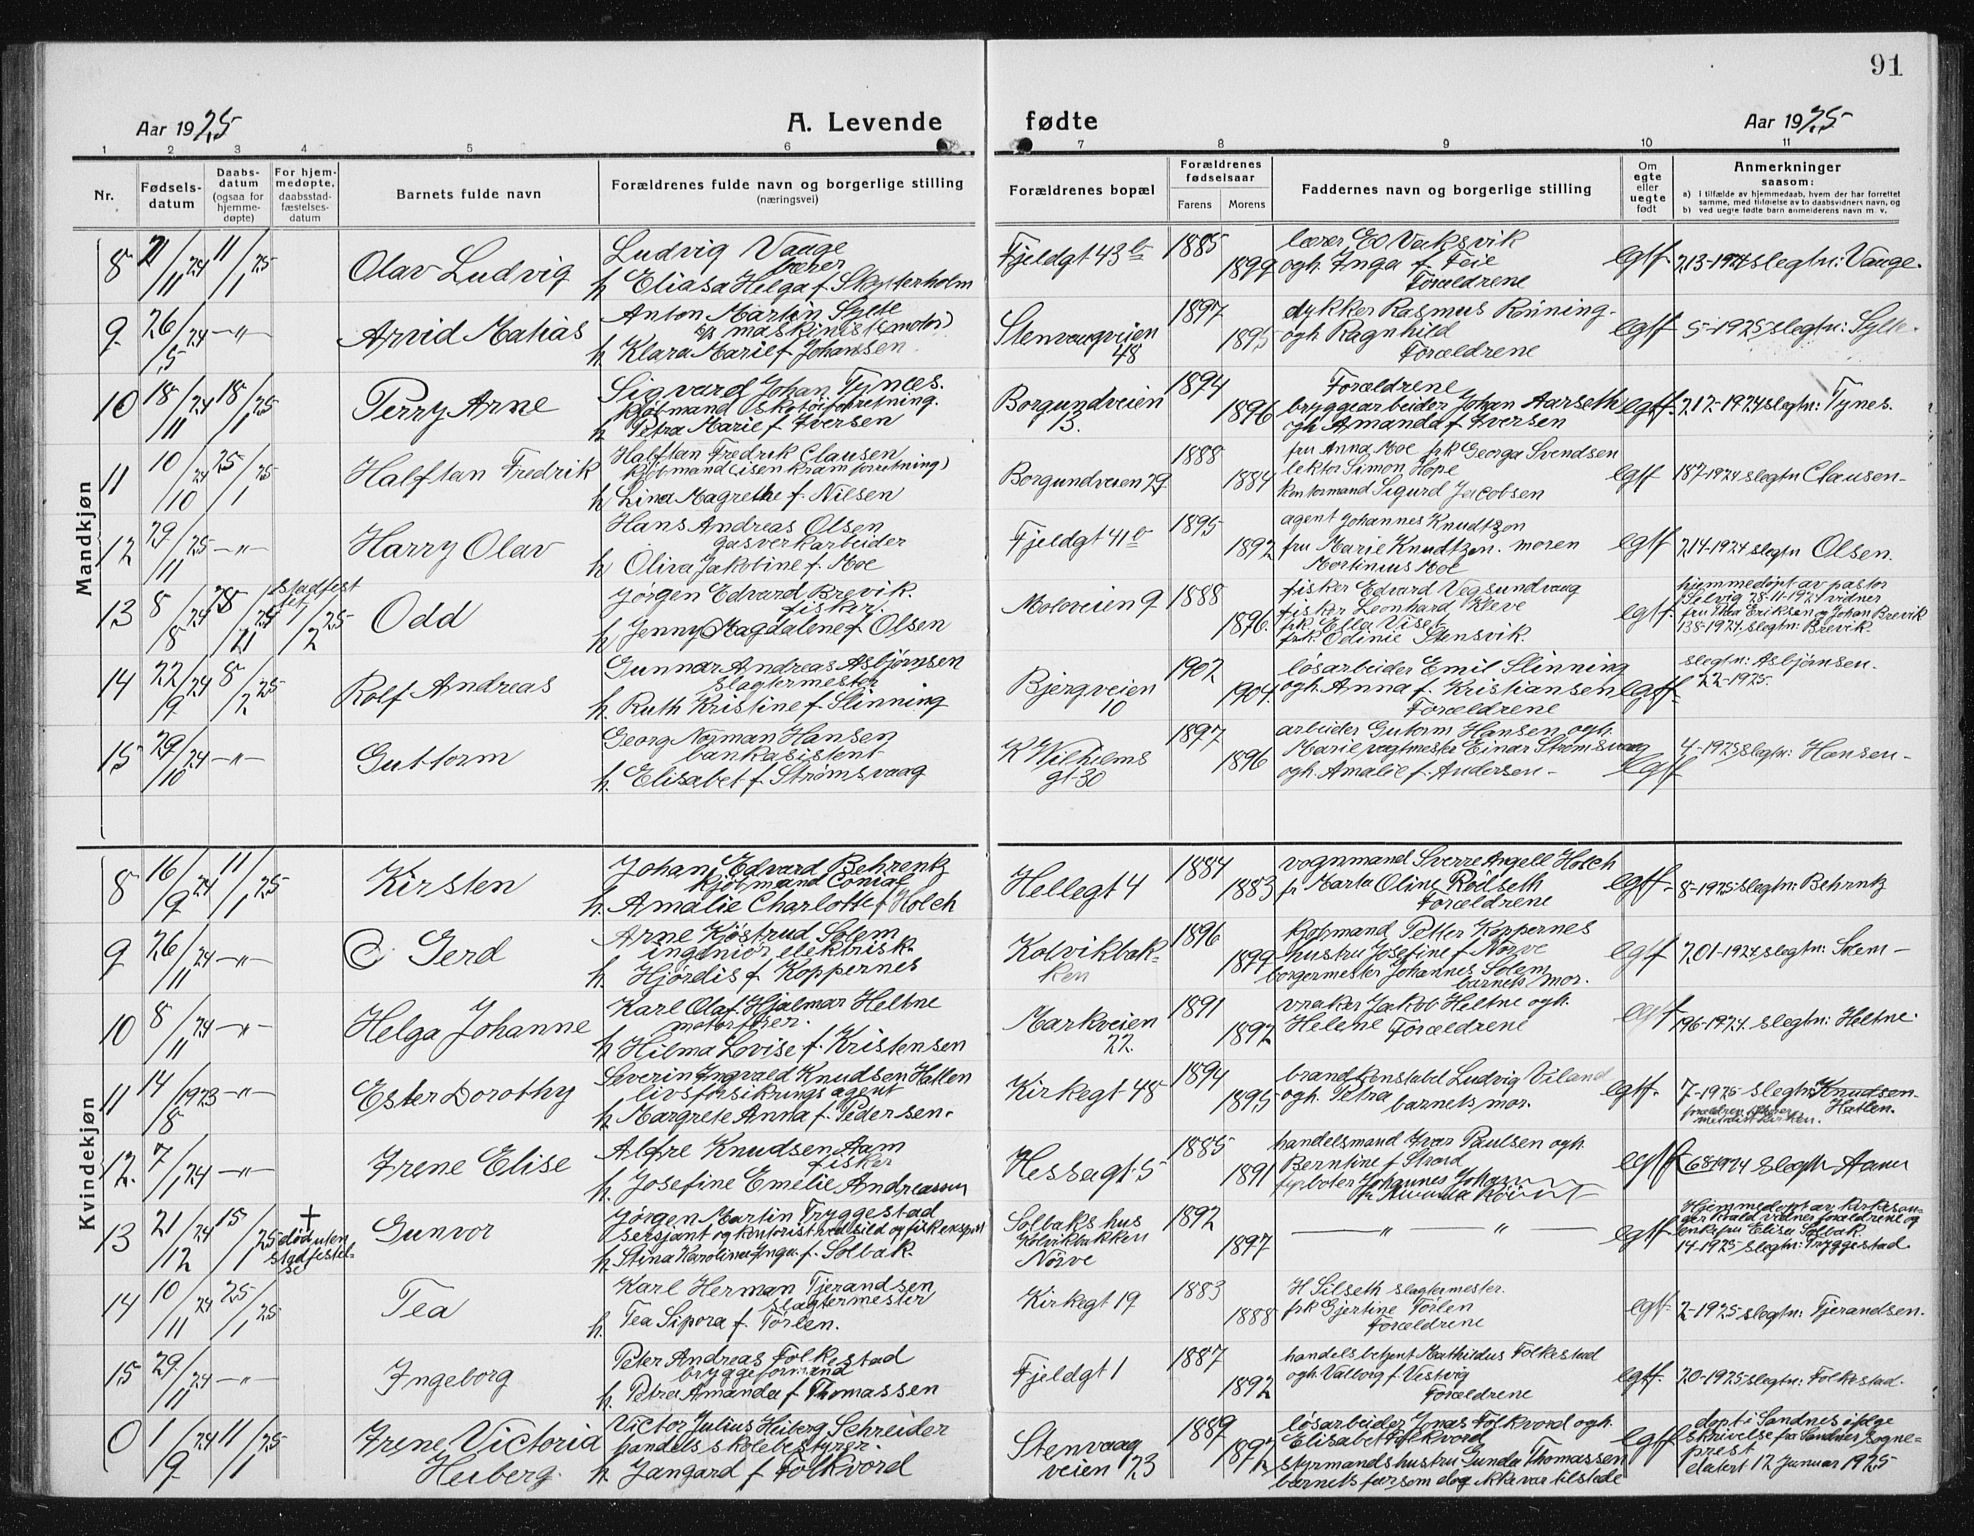 91
Aar 1925
A. Levende fødte
Aar 1925
1 2 3 4 5 6 7 8 9 10 11
Nr.
Fødsels-
datum
Daabs-
datum
(ogsaa for
hjemme-
døpte)
For hjem-
medøpte,
daabsstad-
fæstelses-
datum
Barnets fulde navn
Forældrenes fulde navn og borgerlige stilling
(næringsvei)
Forældrenes bopæl
Forældrenes
fødselsaar
Farens Morens
Faddernes navn og borgerlige stilling
Om
egte
eller
uegte
født
Anmerkninger
saasom:
a) I tilfælde av hjemmedaab, hvem der har forrettet
samme, med tilføielse av to daabsvidners navn, og
b) ved uegte fødte barn anmelderens navn m. v.
Mandkjøn
8 21/11 24 11/1 25
Olav Ludvig
Ludvig Vaage
lærer
h. Eliasa Helga f. Skytterholm
Fjeldgt 43 b
1885 1899
lærer Ed Vaksvik
ogh. Inga f. Feie
Forældrene
egtf. 213-1924 slegtn: Vaage.
9 26/5 24 —"—
Arvid Matias
Anton Martin Sylte
maskinist (motor)
h. Klara Marie f. Johansen
Stenvaagveien
48
1897 1895
dykker Rasmus Rønning-
ogh. Ragnhild
Forældrene
egtf 5-1925 slegtn: Sylte.
10 18/11 24 18/1 25
Perry Arne
Sigvard Johan Tynes.
kjøbmand skotøiforretning.
h. Petra Marie f. Iversen
Borgundveien
13.
1894 1896
Forældrene
bryggearbeider Johan Aarseth
ogh. Amanda f. Iversen
egtf. 212-1924 slegtn: Tynes.
11 10/10 24 25/1 25
Halftan Fredrik
Halftan Fredrik Clausen
kjøbmand (isenkramforretning)
h. Lina Magrethe f. Nilsen
Borgundveien 29
1888 1884
fru Anna Moe frk Georga Svendsen
lektor Simon Hope
kontormand Sigurd Jacobsen
egtf 187-1924 slegtn Clausen-
12 29/11 25 —"—
Harry Olav
Hans Andreas Olsen
gasverkarbeider
h. Oliva Jakobine f. Moe
Fjeldgt 41 b
1895 1892
agent Johannes Knudtzon
fru Marie Knudtzen. moren
Martinius Moe
egtf 214-1924 slegtn Olsen.
13 8/8 24 28/11 24 stadfest
1/2 25
Odd
Jørgen Edvard Brevik.
fisker.
h. Jenny Magdalene f. Olsen
Moloveien 9
1888 1896.
fisker Edvard Vegsundvaag
fisker Leonhard Kleve
frk. Ella Viset
frk. Odinie Stensvik.
egtf. hjemmedøpt av pastor
Selvig 28-11-1924 vidner
fru Thea Eriksen og Johan Brevik
138-1924 slegtn: Brevik.
14 22/9 24 8/2 25
Rolf Andreas
Gunnar Andreas Asbjørnsen
slagtermester
h. Ruth Kristine f. Slinning
Bjergveien
10
1902 1904.
løsarbeider Emil Slinning
ogh. Anna f. Kristiansen
Forældrene
egtf- slegtn: Asbjørnsen.
22-1925.
15 29/10 24 —"—
Guttorm
Georg Norman Hansen
bankasistent
h. Elisabet f. Strømsvaag
K Wilhelms
gt 30
1897 1896
arbeider Gutorm Hansen ogh.
Marie vagtmester Einar Strømsvaag
ogh. Amalie f. Andersen-
egtf 4-1925 slegtn: Hansen-
Kvindekjøn
8 16/9 24 11/1 25
Kirsten
Johan Edvard Behrentz
kjøbmand
h. Amalie Charlotte f Holch
Hellegt 4
1884 1883
vognmand Sverre Angell Holch
fr Marta Oline Rødseth
Forældrene
egtf. 8-1925 slegtn: Behrntz
9 26/11 24 —"—
Gerd
Arne Kjøstrud Solem
ingeniør elektrisk.
h. Hjørdis f. Koppernes
Kolvikbak-
ken
1896 1899
kjøbmand Petter Koppernes
hustru Josefine f. Nørve
borgermester Johannes Solem
barnets mor.
egtf 201-1924 slegtn: Solem-
10 8/11 24 —"—
Helga Johanne
Karl Olaf Hjalmar Heltne
motorfører.
h. Hilma Lovise f. Kristensen
Markveien
22.
1891 1892
vraker Jakob Heltne ogh.
Helene Forældrene
egtf 196-1924. slegtn: Heltne.
11 14/8 1923 —"—
Ester Dorothy
Severin Ingvald Knudsen Hatlen
livsforsikrings agent
h. Margrete Anna f. Pedersen.
Kirkegt 48
1894 1895
brandkonstabel Ludvig Viland
ogh. Petra
barnets mor.
egtf. 7-1925 slegtn: Knudsen-
Hatlen.
12. 7/1 24 —"—
Irene Elise
Alfre Knudsen Aam
fisker
h. Josefine Emelie Andreassen
Hessagt 5
1885 1891
handelsmand Ivar Paulsen ogh.
Berntine f Strand
fyrbøter Johannes Johansen
egtf 68-1924 slegtn Aam
13 21/12 24 15/1 25 +
død uten
stadfestel-
se
Gunvor
Jørgen Martin Tryggestad
sersjant og kontorist ved sild og fiskeksport
h. Stina Karoline Inga f. Solbak.
Solbaks hus
Kolvikbakken
Nørve
1892 1897
—"— —"—
egtf Hjemmedøpt av kirkesan-
ger Kvald vidner forældrene og
enkefru Elise Solbak.
14-1925 slegtn: Tryggestad.
14 10/11 24 25/1 25
Tea
Karl Herman Tjerandsen
slagtermester
h. Tea Sipora f. Førlen.
Kirkegt 19
1883 1888
H Silseth slagtermester.
frk Gjertine Førlen
Forældrene
egtf 2-1925 slegtn: Tjerandsen.
15 29/11 24 —"—
Ingeborg
Peter Andreas Folkestad
bryggeformand
h. Petra Amanda f Thomassen
Fjeldgt 1
1887 1892
handelsbetjent Mathildus Folkestad
ogh. Valborg f. Vestvig
Forældrene
egtf. 20-1925 slegtn: Folkestad.
0 1/9 24 11/1 25
Irene Victoria
Heiberg.
Victor Julius Heiberg Schreider
handelsskolebestyrer.
h. Jangard f Folkvord
Stenvaag
veien 23
1889 1892
løsarbeider Jonas Folkvord ogh.
Elisabet Folkvord
styrmandshustru Gunda Thomassen
barnets far, som dog ikke var tilstede
egtf døpt i Sandnes ifølge
skrivelse fra Sandnes sogne-
prest
datert 12 januar 1925